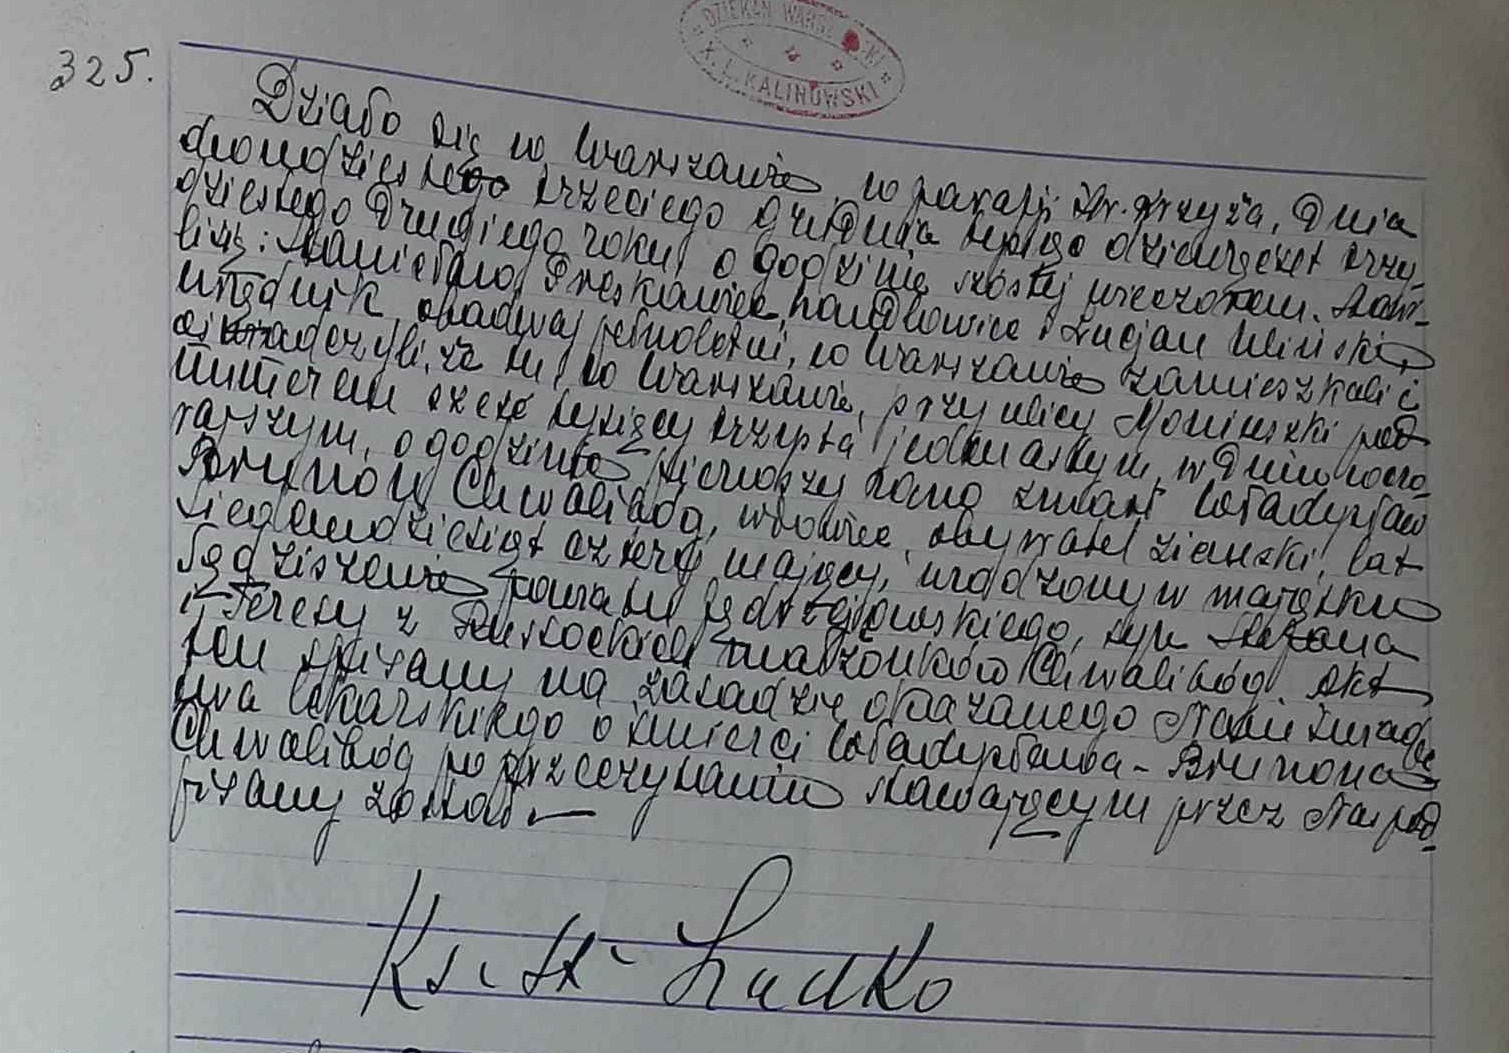 DZIEKAN WARSZ
X. L. KALINOWSKI
325.
Działo się w Warszawie, w parafji Św. Krzyża, Dnia
dwudziestego trzeciego grudnia tysiąc dziewięćset trzy-
dziestego drugiego roku, o godzinie szóstej wieczorem. Stawi-
li się: Stanisław handlowiec i Lucjan
urzędnik, obadwaj pełnoletni, w Warszawie zamieszkali i
oświadczyli, że tu, w Warszawie, przy ulicy Moniuszki pod
numerem sześć tysięcy trzysta jedenastym, w dniu wczo-
rajszym, o godzinie pierwszej rano zmarł Władysław
Brunon Chwalibóg, wdowiec, obywatel ziemski, lat
siedemdziesiąt cztery mający, urodzony w majątku
Sędziszowie powiatu jędrzejowskiego, syn Stefana
i Teresy z małżonków Chwalibóg. Akt
ten spisany na zasadzie okazanego Nam świade-
ctwa lekarskiego o śmierci Władysława-Brunona
Chwalibóg po przeczytaniu stawającym przez Nas pod-
pisany został. —
Ks. St. Ludko